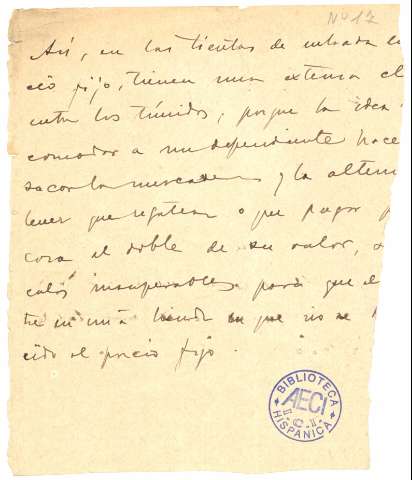 Nº 17
Así, en las tiendas de entrada
cio fijo, tienen una extensa cl
entre los tímidos, porque la idea
comodar a un dependiente hace
sacar la mercader y la altern
tener que regatear o que pagar p
cosa el doble de su valor,
culos insuperables para que e
tre en una tienda en que no se
cido el precio fijo.
BIBLIOTECA HISPÁNICA
AECI